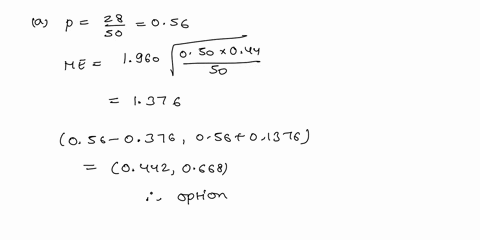 (a) p = 28/50 = 0.56
ME = 1.960 √(0.50 × 0.44 / 50)
= 1.376
(0.56 − 0.376, 0.56 + 0.1376)
= (0.442, 0.668)
∴ option